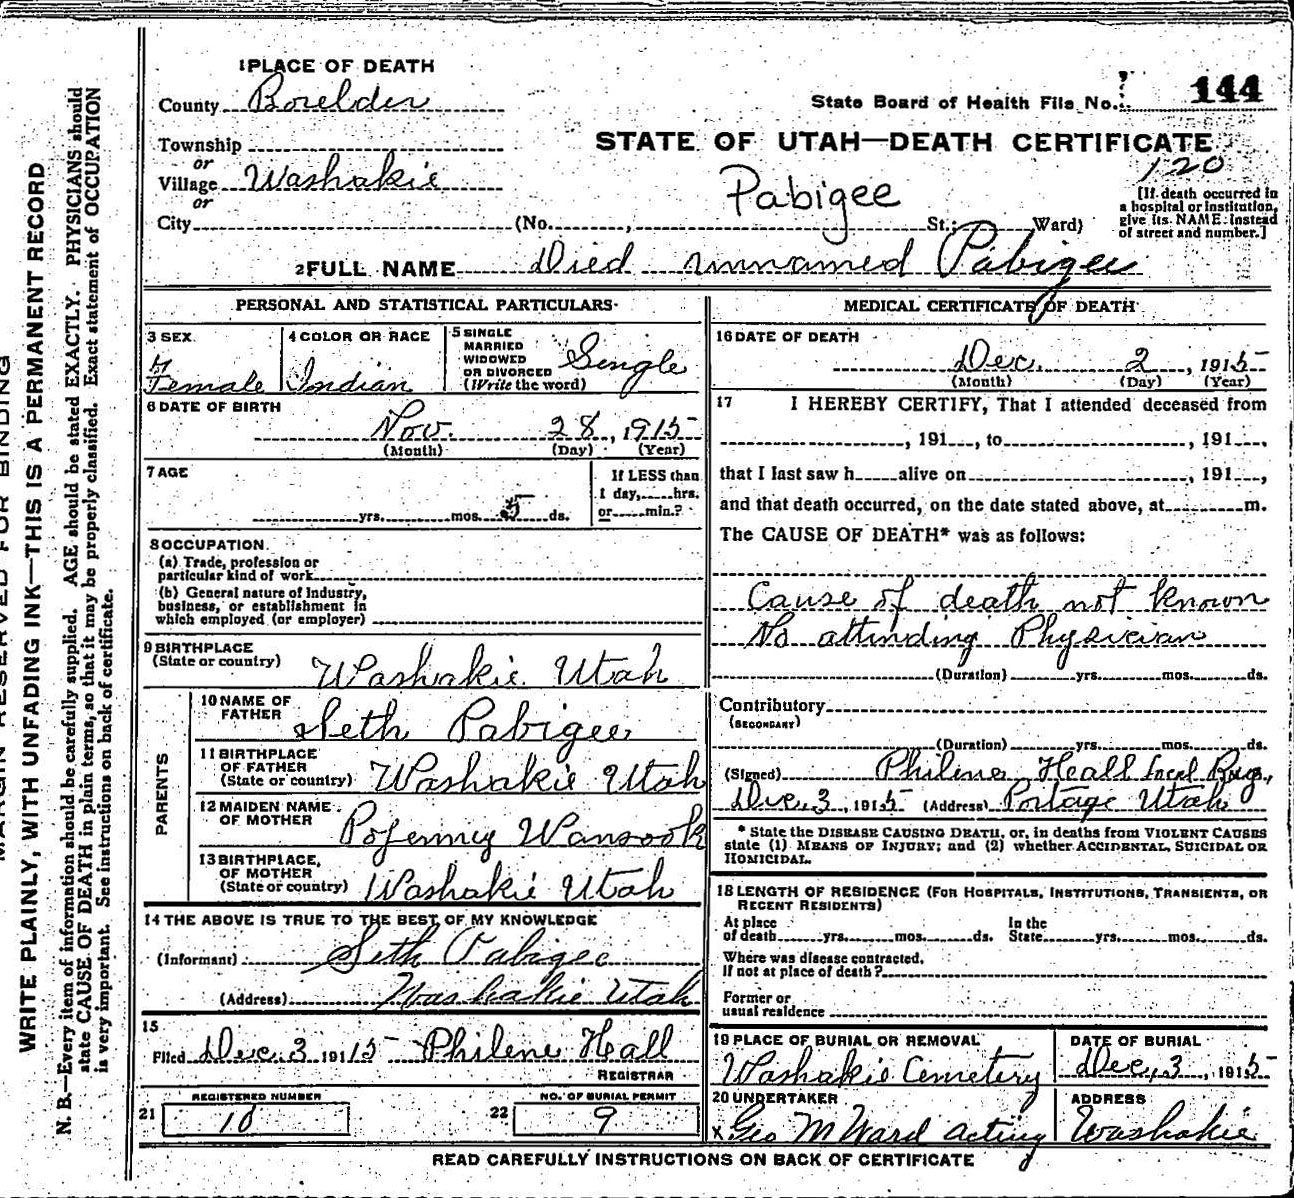 1 PLACE OF DEATH
County Boxelder
State Board of Health File No. 144
Township
STATE OF UTAH—DEATH CERTIFICATE
or
120
Village Washakie
Pabigee
or
[If death occurred in
a hospital or institution,
give its NAME instead
of street and number.]
City (No. , St.; Ward)
2 FULL NAME Died unnamed Pabigee
PERSONAL AND STATISTICAL PARTICULARS
3 SEX
Female
4 COLOR OR RACE
Indian
5 SINGLE
MARRIED
WIDOWED
OR DIVORCED
(Write the word)
Single
6 DATE OF BIRTH
Nov. 28, 1915
(Month) (Day) (Year)
7 AGE
If LESS than
1 day, hrs.
yrs. mos. 5 ds. or min.?
8 OCCUPATION
(a) Trade, profession or
particular kind of work
(b) General nature of Industry,
business, or establishment in
which employed (or employer)
9 BIRTHPLACE
(State or country) Washakie Utah
PARENTS
10 NAME OF
FATHER Seth Pabigee
11 BIRTHPLACE
OF FATHER
(State or country) Washakie Utah
12 MAIDEN NAME
OF MOTHER Wansook
13 BIRTHPLACE,
OF MOTHER
(State or country) Washakie Utah
14 THE ABOVE IS TRUE TO THE BEST OF MY KNOWLEDGE
(Informant) Seth Pabigee
(Address) Washakie Utah
15
Filed Dec. 3 1915 Philene Heall
REGISTRAR
REGISTERED NUMBER
21 10
NO. OF BURIAL PERMIT
22 9
MEDICAL CERTIFICATE OF DEATH
16 DATE OF DEATH
Dec. 2, 1915
(Month) (Day) (Year)
17 I HEREBY CERTIFY, That I attended deceased from
, 191 , to , 191 ,
that I last saw h alive on , 191 ,
and that death occurred, on the date stated above, at m.
The CAUSE OF DEATH* was as follows:
Cause of death not known
No attending Physician
(Duration) yrs. mos. ds.
Contributory
(SECONDARY)
(Duration) yrs. mos. ds.
(Signed) Philene Heall Local Reg.,
Dec, 3, 1915 (Address) Portage Utah
* State the DISEASE CAUSING DEATH, or, in deaths from VIOLENT CAUSES
state (1) MEANS OF INJURY; and (2) whether ACCIDENTAL, SUICIDAL OR
HOMICIDAL.
18 LENGTH OF RESIDENCE (FOR HOSPITALS, INSTITUTIONS, TRANSIENTS, OR
RECENT RESIDENTS)
At place
of death yrs. mos. ds.
In the
State yrs. mos. ds.
Where was disease contracted,
if not at place of death?
Former or
usual residence
19 PLACE OF BURIAL OR REMOVAL
Washakie Cemetery
DATE OF BURIAL
Dec, 3, 1915
20 UNDERTAKER
x Geo M Ward acting
ADDRESS
Washakie
READ CAREFULLY INSTRUCTIONS ON BACK OF CERTIFICATE
MARGIN RESERVED FOR BINDING
WRITE PLAINLY, WITH UNFADING INK—THIS IS A PERMANENT RECORD
N. B.—Every item of information should be carefully supplied. AGE should be stated EXACTLY. PHYSICIANS should
state CAUSE OF DEATH in plain terms, so that it may be properly classified. Exact statement of OCCUPATION
is very important. See instructions on back of certificate.